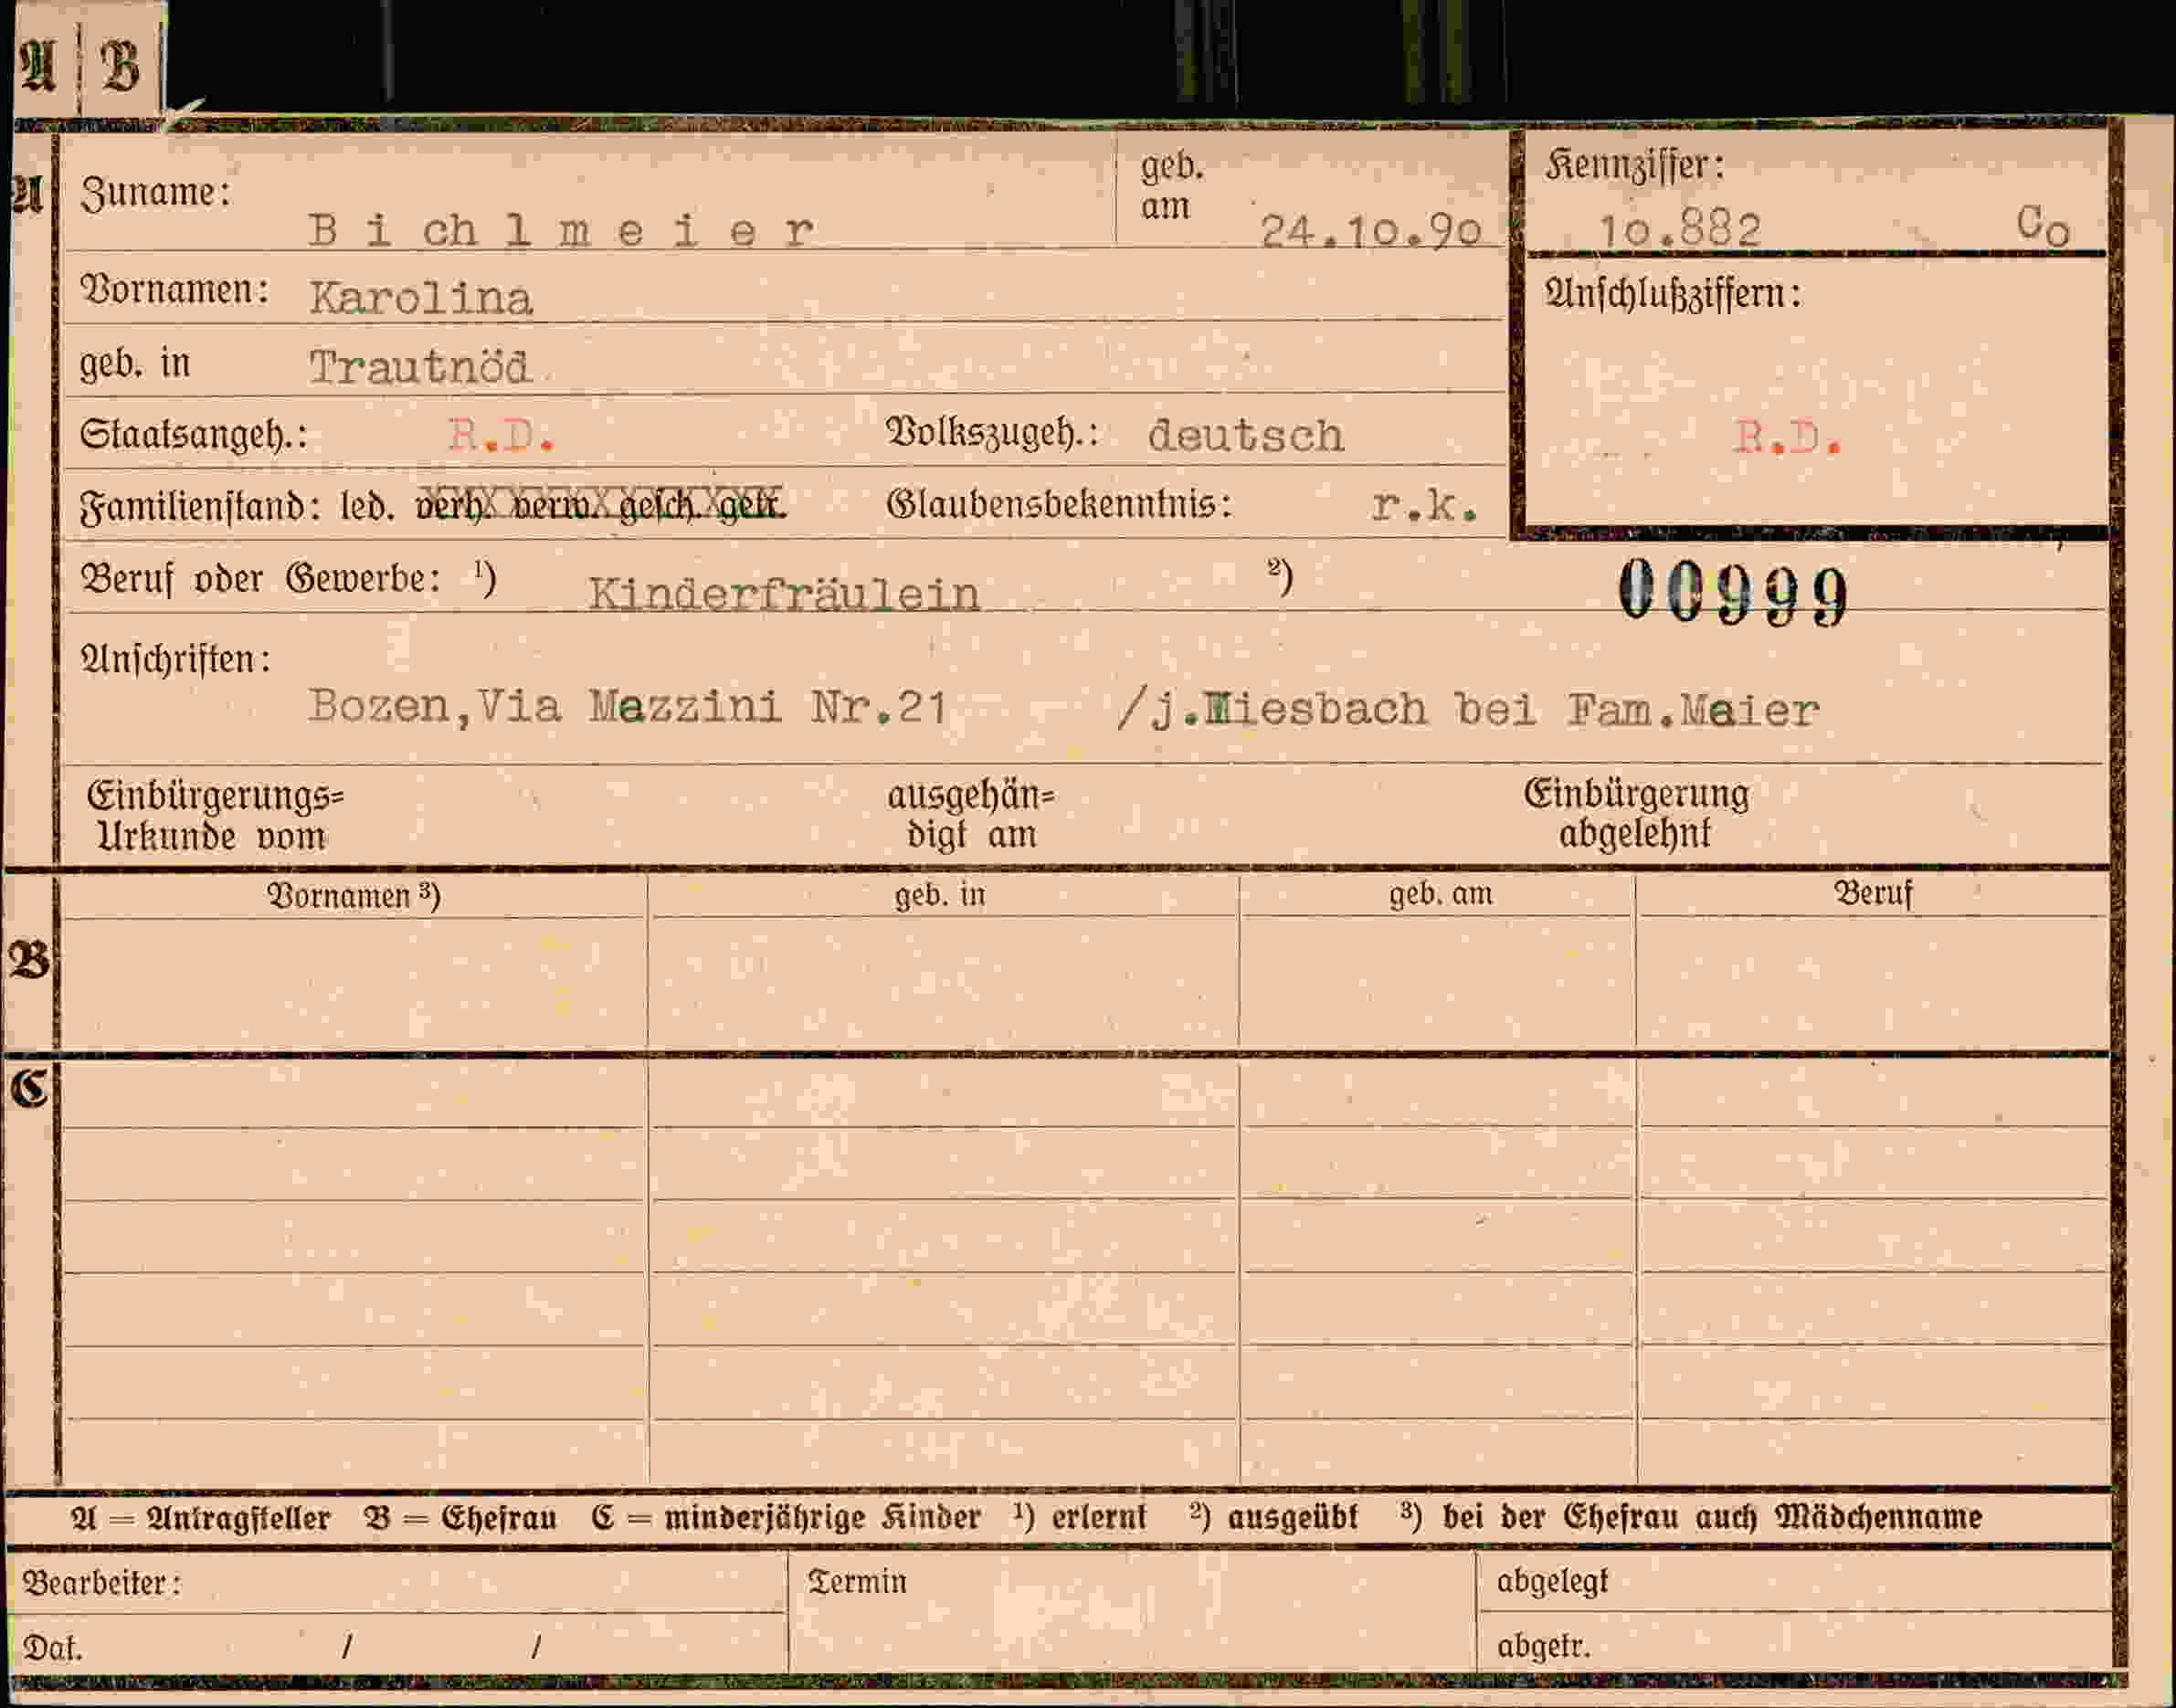 A B
A Zuname: Bichlmeier geb. am 24.10.90 Kennziffer: 10.882 Co
Vornamen: Karolina Anschlußziffern:
geb. in Trautnöd
Staatsangeh.: R.D. Volkszugeh.: deutsch R.D.
Familienstand: led. verh. verw. gesch. getr. Glaubensbekenntnis: r.k.
Beruf oder Gewerbe: ¹) Kinderfräulein ²) 00999
Anschriften:
Bozen,Via Mazzini Nr.21 /j.Miesbach bei Fam.Maier
Einbürgerungs= ausgehän= Einbürgerung
Urkunde vom digt am abgelehnt
Vornamen ³) geb. in geb. am Beruf
B
C
A = Antragsteller B = Ehefrau C = minderjährige Kinder ¹) erlernt ²) ausgeübt ³) bei der Ehefrau auch Mädchenname
Bearbeiter: Termin abgelegt
Dat. / / abgetr.